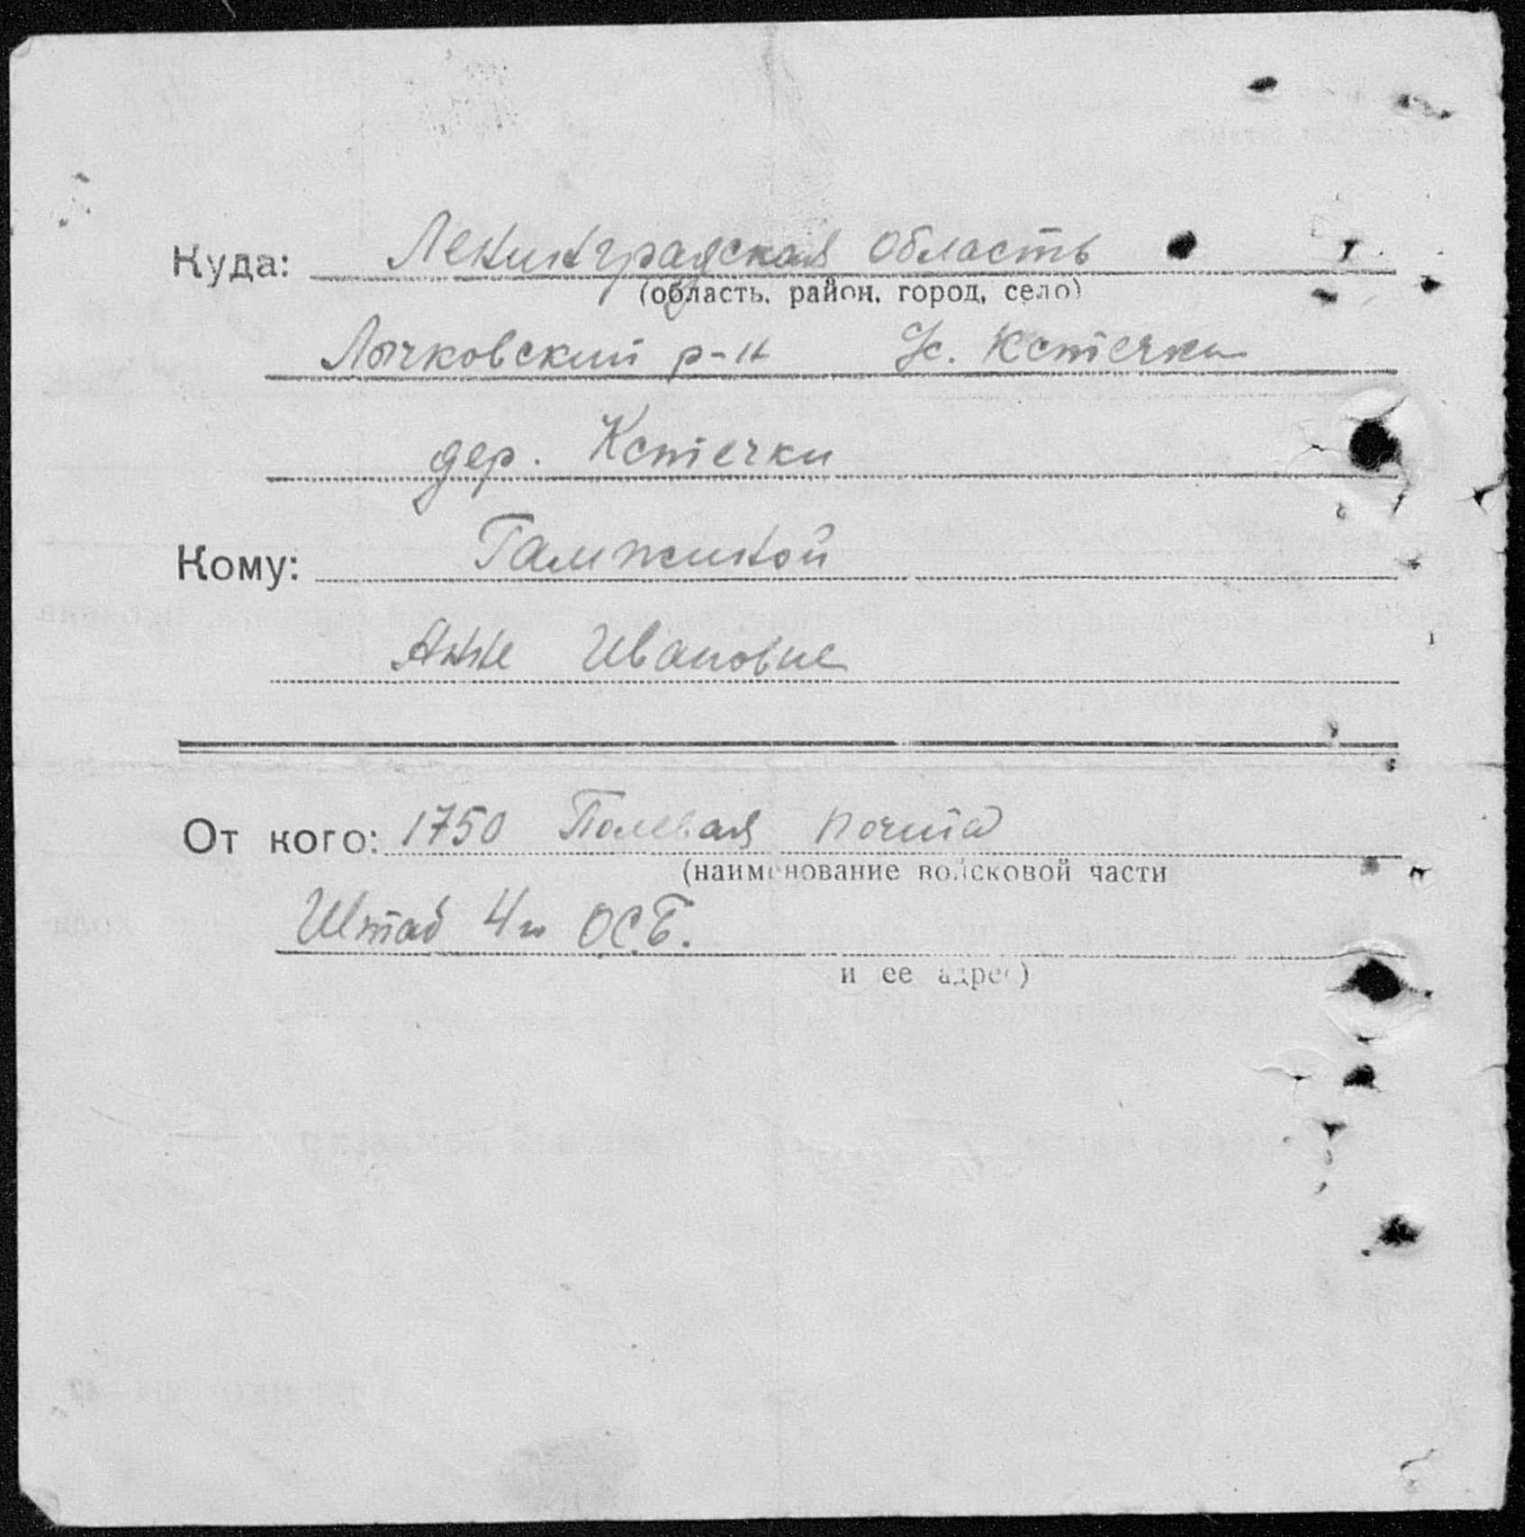 Куда: Ленинградская область
(область, район, город, село)
Лычковский р-н с. Кстечки
дер. Кстечки
Кому: Гамжиной
Анне Ивановне
От кого: 1750 Полевая почта
(наименование войсковой части
Штаб 4й ОСБ.
и ее адрес)